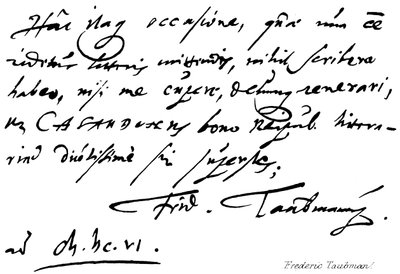 Hâc itaq occasione, quâ nũc eẽ
literis mittendis, nihil scribere
habeo, nisi me cupere, & Deum venerari,
ut CASAUBONUS bono Reipub. litera-
riæ diutissimè sit superstes.
Frid. Taubmanus
Frederic Taubman.